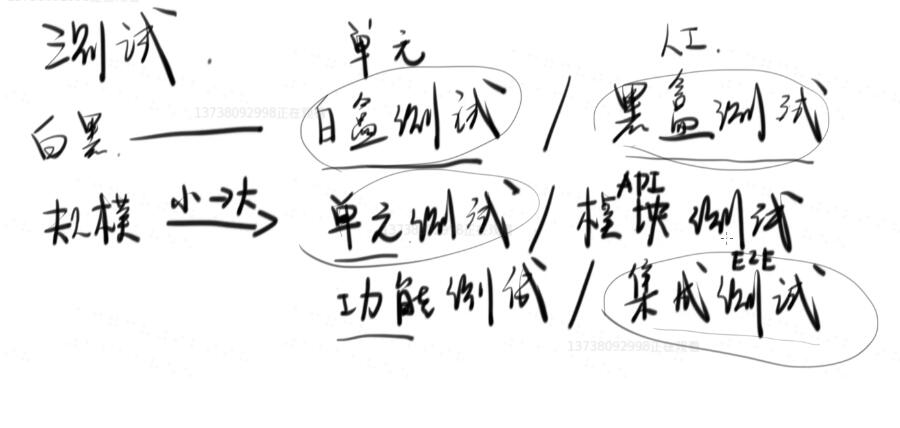 测试.
单元 人工.
白黑. 白盒测试 / 黑盒测试
规模 小→大 单元测试 / 模块测试 API
功能测试 / 集成测试 E2E
13738092998正在观看
13738092998正在观看